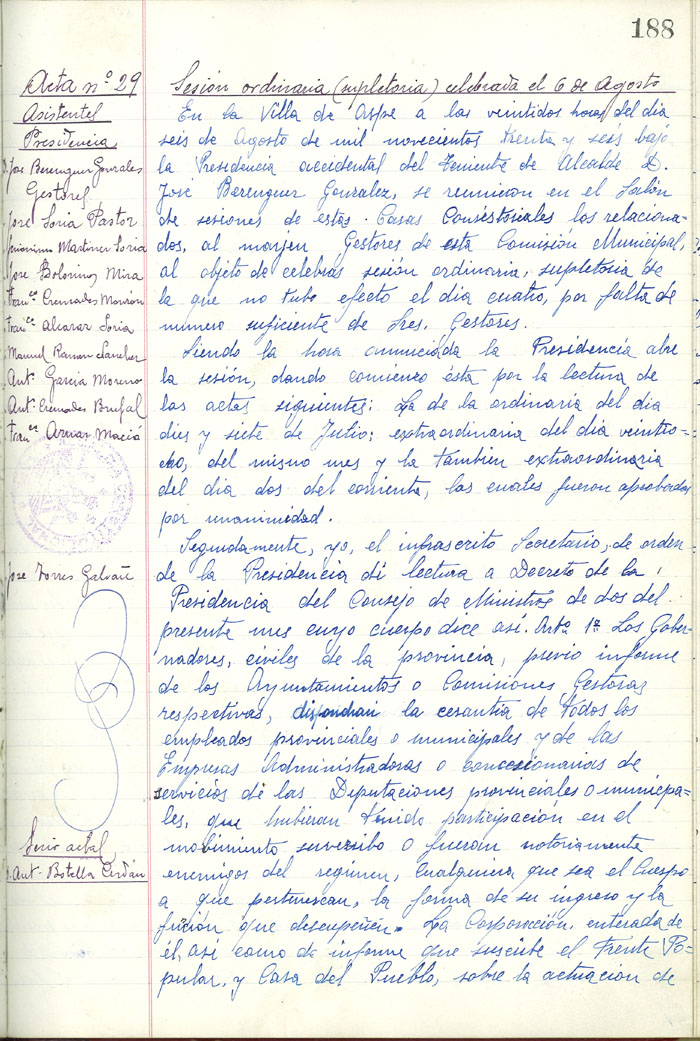 188
Acta nº 29
Asistentes
Presidencia
Jose Berenguer Gonzales
Gestores
Jose Soria Pastor
Martinez Soria
Jose Bolorinos Mira
Franco Cremades Mourón
Franco Alcaraz Soria
Manuel Ramon Sanchez
Ant. Garcia Moreno
Ant. Cremades Brufal
Franco Aznar Maciá
Jose Torres Galvañ
Srio actal
Ant. Botella Cerdán
Sesión ordinaria (supletoria) celebrada el 6 de Agosto
En la Villa de Aspe a las veintidos horas del dia
seis de Agosto de mil novecientos treinta y seis bajo
la Presidencia accidental del Teniente de Alcalde D.
José Berenguer Gonzalez, se reunieron en el Salón
de sesiones de estas Casas Consistoriales los relaciona-
dos, al marjen Gestores de esta Comisión Municipal,
al objeto de celebrar sesión ordinaria, supletoria de
la que no tubo efecto el dia cuatro, por falta de
numero suficiente de Sres. Gestores.
Siendo la hora anunciada la Presidencia abre
la sesión, dando comienzo ésta por la lectura de
las actas siguientes: La de la ordinaria del dia
dies y siete de Julio; extraordinaria del dia veintio-
cho, del mismo mes y la tambien extraordinaria
del dia dos del corriente, las cuales fueron aprobadas
por unanimidad.
Seguidamente, yo, el infrascrito Secretario, de orden
de la Presidencia di lectura a Decreto de la
Presidencia del Consejo de Ministros de dos del
presente mes cuyo cuerpo dice así. Artº 1º Los Gober-
nadores, civiles de la provincia, previo informe
de los Ayuntamientos o Comisiones Gestoras
respectivas, dispondran la cesantia de todos los
empleados provinciales o municipales y de las
Empresas Administradoras o concesionarias de
servicios de las Diputaciones provinciales o municipa-
les, que hubieran tenido participación en el
movimiento surversibo o fueran notoriamente
enemigos del regimen, cualquiera que sea el Cuerpo
a que pertenezcan, la forma de su ingreso y la
función que desempeñen. La Corporación, enterada de
él, así como de informe que suscribe el Frente Po-
pular, y Casa del Pueblo, sobre la actuación de